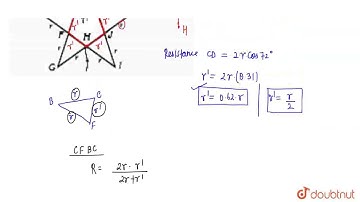 r'
F H
r r' r' r
G I
H
Resistance CD = 2r Cos 72°
r' = 2r (0.31)
r' = 0.62 r
r' = r/2
B r C
r r'
F
CFBC
R = 2r · r' / 2r + r'
doubtnut